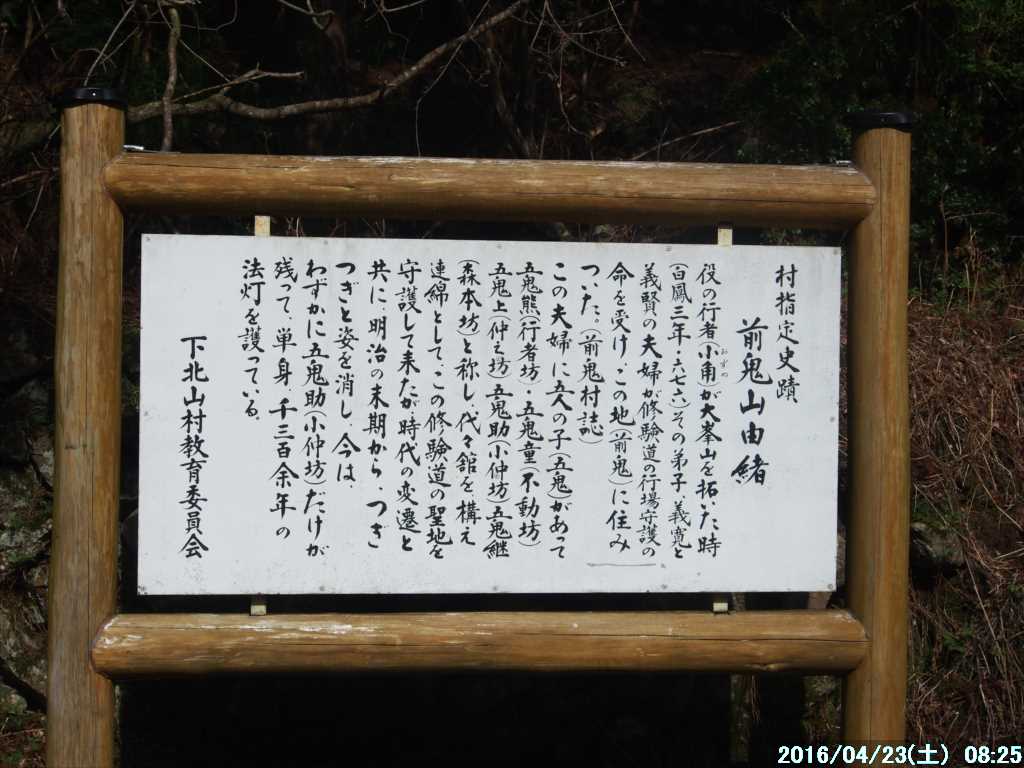 村指定史蹟
前鬼山由緒
役の行者(小角)が大峯山を拓いた時
おずの
(白鳳三年・六七六)その弟子、義寛と
義賢の夫婦が修験道の行場守護の
命を受け、この地(前鬼)に住み
ついた。(前鬼村誌)
この夫婦に五人の子(五鬼)があって
五鬼熊(行者坊)・五鬼童(不動坊)
五鬼上(仲之坊)五鬼助(小仲坊)五鬼継
(森本坊)と称し、代々館を構え
連綿として、この修験道の聖地を
守護して来たが、時代の変遷と
共に、明治の末期から、つぎ
つぎと姿を消し、今は
わずかに五鬼助(小仲坊)だけが
残って、単身、千三百余年の
法灯を護っている。
下北山村教育委員会
2016/04/23(土) 08:25